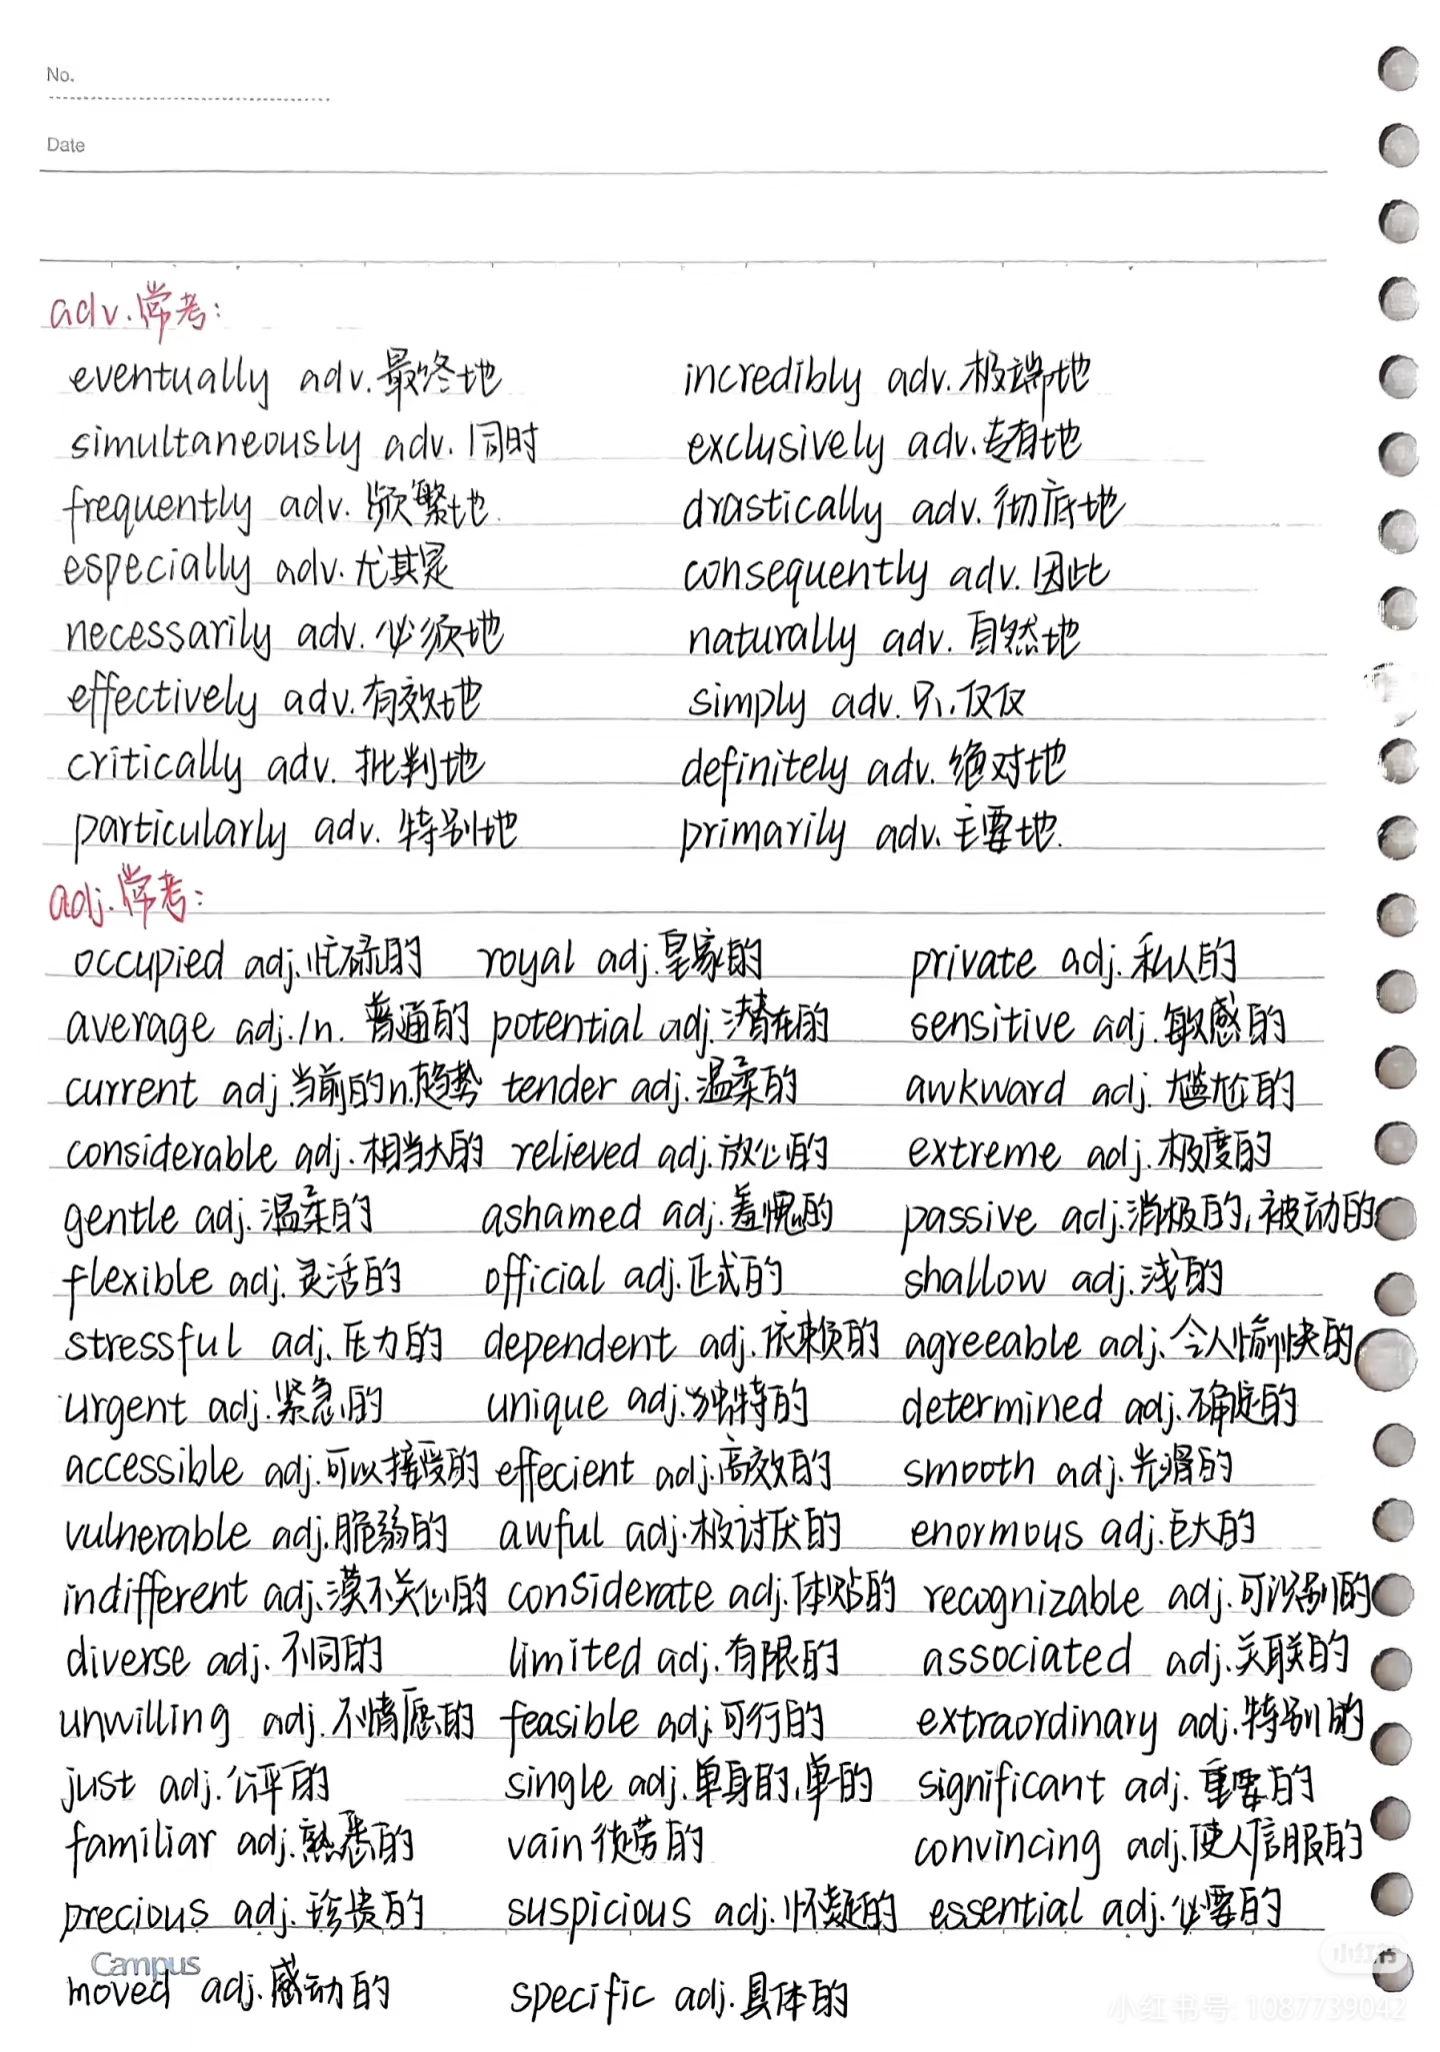 No.
Date
adv.常考:
eventually adv.最终地 incredibly adv.极端地
simultaneously adv.同时 exclusively adv.专有地
frequently adv.频繁地. drastically adv.彻底地
especially adv.尤其是 consequently adv.因此
necessarily adv.必须地 naturally adv.自然地
effectively adv.有效地 simply adv.只,仅仅
critically adv.批判地 definitely adv.绝对地
particularly adv.特别地 primarily adv.主要地.
adj.常考:
occupied adj.忙碌的 royal adj.皇家的 private adj.私人的
average adj./n. 普通的 potential adj.潜在的 sensitive adj.敏感的
current adj.当前的n.趋势 tender adj.温柔的 awkward adj.尴尬的
considerable adj.相当大的 relieved adj.放心的 extreme adj.极度的
gentle adj.温柔的 ashamed adj.羞愧的 passive adj.消极的,被动的
flexible adj.灵活的 official adj.正式的 shallow adj.浅的
stressful adj.压力的 dependent adj.依赖的 agreeable adj.令人愉快的
urgent adj.紧急的 unique adj.独特的 determined adj.确定的
accessible adj.可以接受的 effecient adj.高效的 smooth adj.光滑的
vulnerable adj.脆弱的 awful adj.极讨厌的 enormous adj.巨大的
indifferent adj.漠不关心的 considerate adj.体贴的 recognizable adj.可识别的
diverse adj.不同的 limited adj.有限的 associated adj.关联的
unwilling adj.不情愿的 feasible adj.可行的 extraordinary adj.特别的
just adj.公平的 single adj.单身的,单的 significant adj.重要的
familiar adj.熟悉的 vain徒劳的 convincing adj.使人信服的
precious adj.珍贵的 suspicious adj.怀疑的 essential adj.必要的
Campus
moved adj.感动的 specific adj.具体的
小红书
小红书号: 1087739042